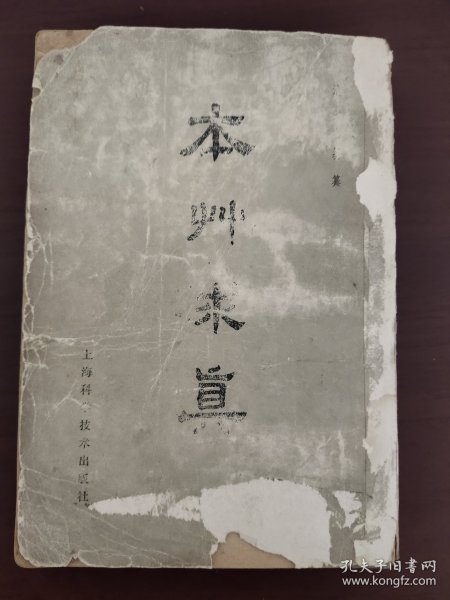 纂
本艸求真
上海科学技术出版社
孔夫子旧书网
www.kongfz.com